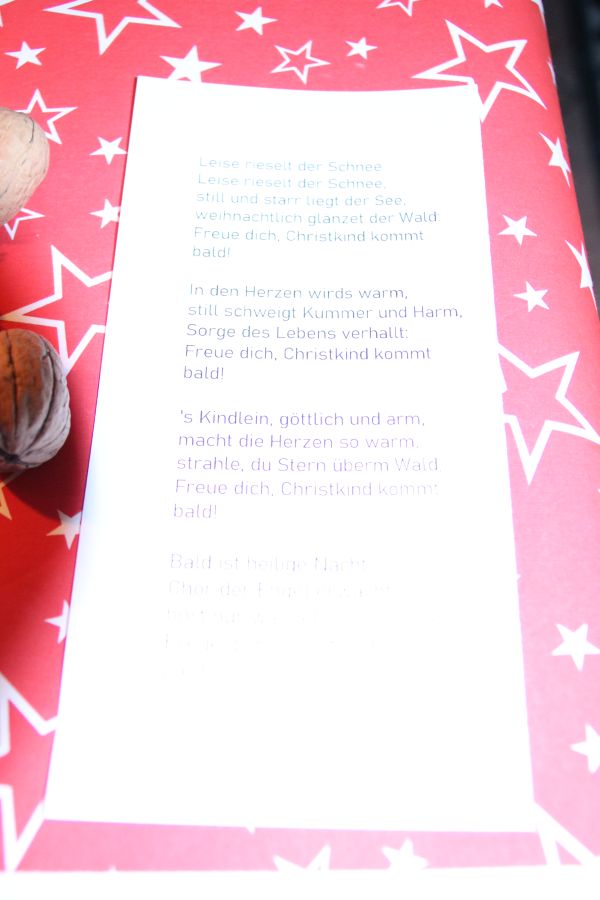 Leise rieselt der Schnee
Leise rieselt der Schnee,
still und starr liegt der See,
weihnachtlich glänzet der Wald.
Freue dich, Christkind kommt
bald!
In den Herzen wirds warm,
still schweigt Kummer und Harm,
Sorge des Lebens verhallt:
Freue dich, Christkind kommt
bald!
's Kindlein, göttlich und arm,
macht die Herzen so warm,
strahle, du Stern überm Wald.
Freue dich, Christkind kommt
bald!
Bald ist heilige Nacht
Chor der Engel